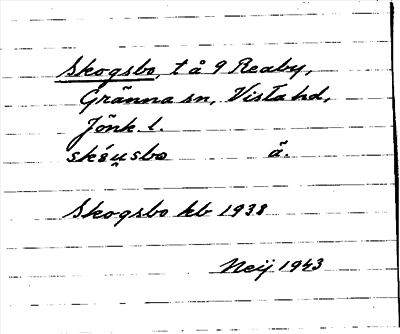 Skogsbo, t å 9 Reaby,
Gränna sn, Vista hd,
Jönk. l.
skéu̯sbo ä.
Skogsbo kb 1938
Neij 1943